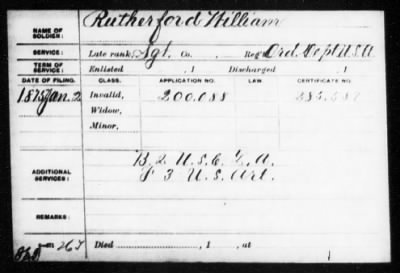 NAME OF SOLDIER: Rutherford William
SERVICE: Late rank, Sgt. Co. Reg't Ord. Dept. U.S.A
TERM OF SERVICE: Enlisted , 1 Discharged , 1
DATE OF FILING. CLASS. APPLICATION NO. LAW. CERTIFICATE NO.
1875 Jan. 2 Invalid, 200.088
Widow,
Minor,
ADDITIONAL SERVICES: B. 2 U.S.
F 3 U.S. Art.
REMARKS:
Died , 1 , at